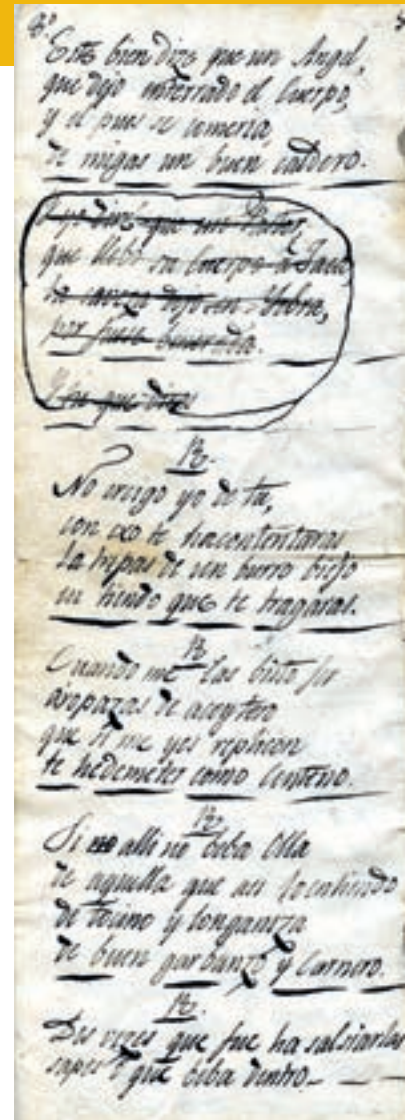 8º
Este bien dize que un Angel,
que dijo interrado el Cuerpo,
y el pues se comeria,
de migas un buen caldero.
que un
que llebó su Cuerpo a Jaca
la caveza dejo en Yebra,
por fuese
Y sin que dizes
R.
No creigo yo de tu,
con exo te hacontentaras
la tripas de un burro biejo
en tiendo que te tragaras.
R.
Cuando me las bisto fer
de
que si me yes replicon
te hedemeter como Centeno.
R.
Si no alli no biba Olla
de aquella que asi
de tocino y longaniza
de buen garbanzo y Carnero.
R.
Des vezes que fue ha
que biba dentro.